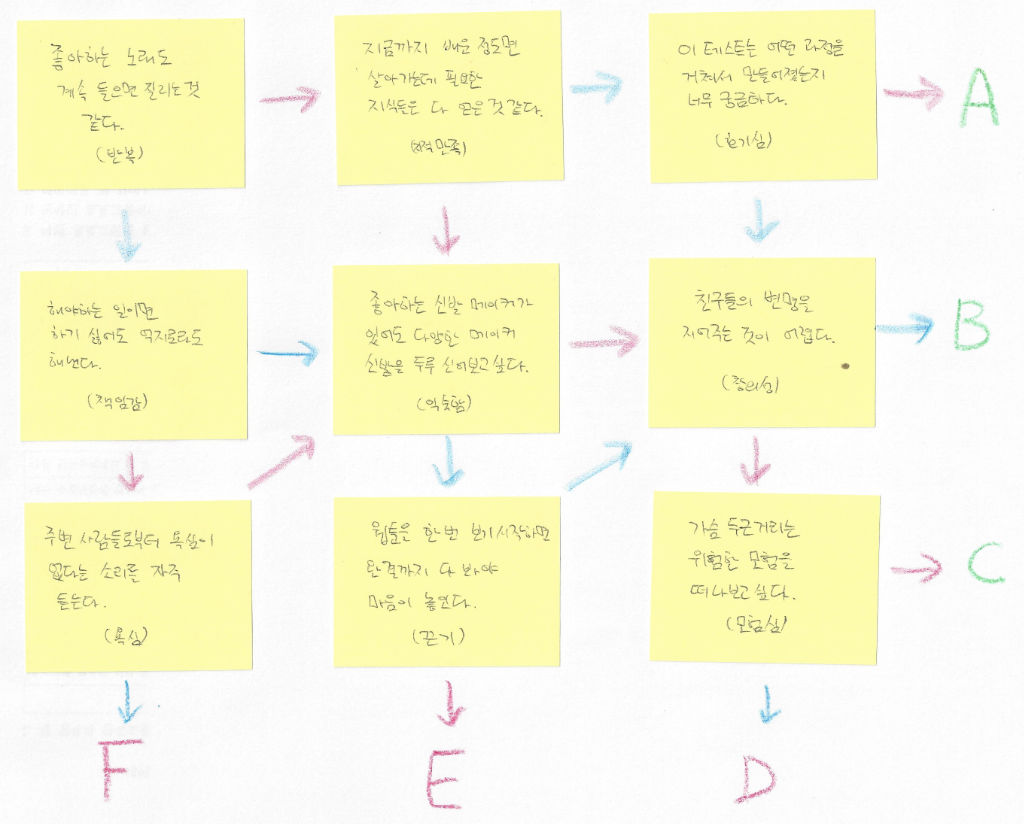 좋아하는 노래도
계속 들으면 질리는 것
같다.
(반복)
지금까지 배운 정도면
살아가는데 필요한
지식들은 다 얻은 것 같다.
(지적만족)
이 테스트는 어떤 과정을
거쳐서 만들어졌는지
너무 궁금하다.
(호기심)
A
해야하는 일이면
하기 싫어도 억지로라도
해낸다.
(책임감)
좋아하는 신발 메이커가
있어도 다양한 메이커
신발을 두루 신어보고 싶다.
(익숙함)
친구들의 변명을
지어주는 것이 어렵다.
(창의성)
B
주변 사람들로부터 욕심이
없다는 소리를 자주
듣는다.
(욕심)
웹툰은 한번 보기 시작하면
완결까지 다 봐야
마음이 놓인다.
(끈기)
가슴 두근거리는
위험한 모험을
떠나보고 싶다.
(모험심)
C
F
E
D